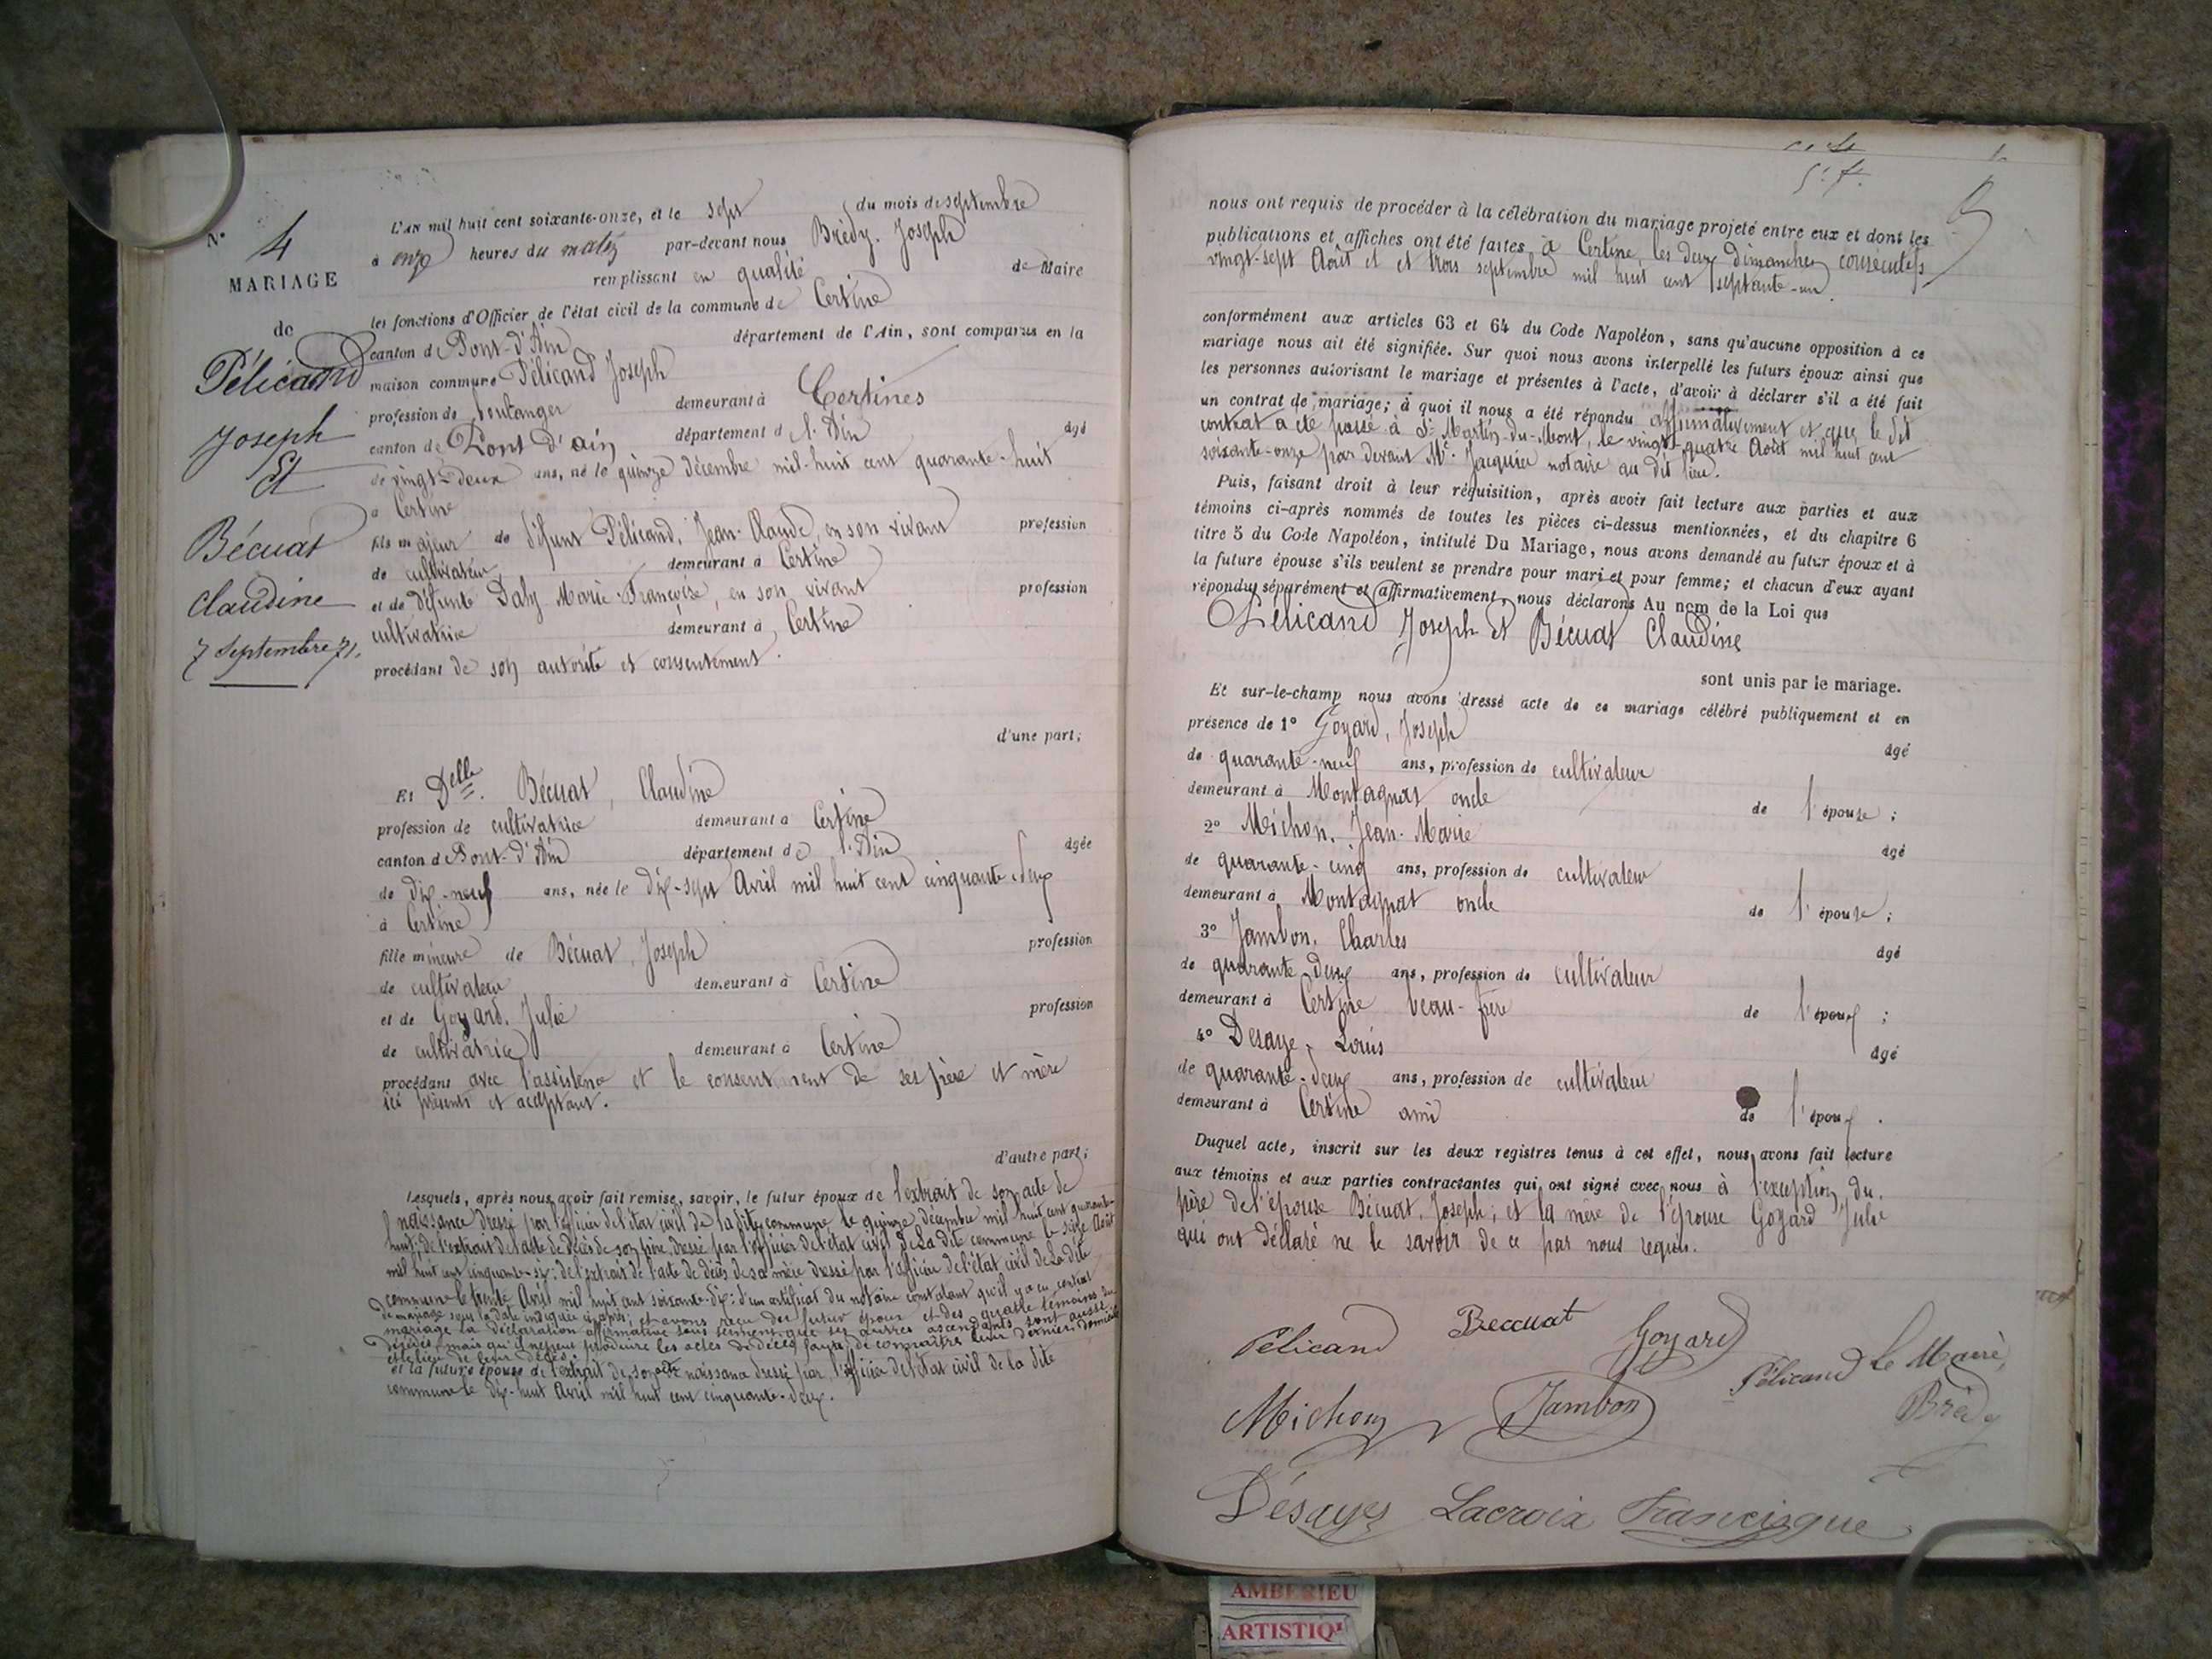 N° 4
MARIAGE
de
Pélicand
Joseph
Et
Bécuat
Claudine
7 Septembre 71.
L'AN mil huit cent soixante-onze, et le sept du mois de septembre
à onze heures du matin par-devant nous Brédy. Joseph
remplissant en qualité de Maire
les fonctions d'Officier de l'état civil de la commune de Certine
canton de Pont-d'Ain département de l'Ain, sont comparus en la
maison commune Pélicand Joseph
profession de boulanger demeurant à Certines
canton de Pont d'ain département de l'Ain âgé
de vingt-deux ans, né le quinze décembre mil-huit cent quarante-huit
à Certine
fils majeur de défunt Pélicand, Jean-Claude, en son vivant profession
de cultivateur demeurant à Certine
et de défunte Daly Marie-Françoise, en son vivant profession
cultivatrice demeurant à Certine
procédant de son autorité et consentement.
d'une part;
Et Delle. Bécuat, Claudine
profession de cultivatrice demeurant à Certine
canton de Pont-d'Ain département de l'Ain âgée
de dix-neuf ans, née le dix-sept Avril mil huit cent cinquante-deux
à Certine
fille mineure de Bécuat, Joseph profession
de cultivateur demeurant à Certine
et de Goyard, Julie profession
de cultivatrice demeurant à Certine
procédant avec l'assistence et le consentement de ses père et mère
ici présents et acceptant.
d'autre part;
Lesquels, après nous avoir fait remise, savoir, le futur époux de l'extrait de son acte de
naissance dressé par l'officier de l'état civil de la dite commune, le quinze décembre mil huit cent quarante-
huit; de l'extrait de l'acte de décès de son père, dressé par l'officier de l'état civil de La dite commune le seize Août
mil huit cent cinquante-six; de l'extrait de l'acte de décès de sa mère dressé par l'officier de l'état civil de La dite
commune le trente Avril mil huit cent soixante-dix; d'un certificat du notaire constatant qu'il y a eu contrat
de mariage sous la date indiquée ci-après; et avons reçu du futur époux et des quatre témoins du
mariage la déclaration affirmative sous serment que ses autres ascendants sont aussi
décédés, mais qu'il ne peut produire les actes de décès faute de connaître leur dernier domicile
et le lieu de leur décès;
et la future épouse de l'extrait de son acte naissance dressé par l'officier de l'état civil de la dite
commune le dix-huit Avril mil huit cent cinquante-deux.
nous ont requis de procéder à la célébration du mariage projeté entre eux et dont les
publications et affiches ont été faites à Certine, les deux dimanches consécutifs
vingt-sept Août et et trois septembre mil huit cent septante-un.
conformément aux articles 63 et 64 du Code Napoléon, sans qu'aucune opposition à ce
mariage nous ait été signifiée. Sur quoi nous avons interpellé les futurs époux ainsi que
les personnes autorisant le mariage et présentes à l'acte, d'avoir à déclarer s'il a été fait
un contrat de mariage; à quoi il nous a été répondu affirmativement et que le dit
contrat a été passé à St Martin-du-Mont, le vingt-quatre Août mil huit cent
soixante-onze par devant Me. Jacquier notaire au dit lieu.
Puis, faisant droit à leur réquisition, après avoir fait lecture aux parties et aux
témoins ci-après nommés de toutes les pièces ci-dessus mentionnées, et du chapitre 6
titre 5 du Code Napoléon, intitulé Du Mariage, nous avons demandé au futur époux et à
la future épouse s'ils veulent se prendre pour mari et pour femme; et chacun d'eux ayant
répondu séparément et affirmativement, nous déclarons Au nom de la Loi que
Pélicand Joseph et Bécuat Claudine
sont unis par le mariage.
Et sur-le-champ nous avons dressé acte de ce mariage célébré publiquement et en
présence de 1° Goyard, Joseph âgé
de quarante-neuf ans, profession de cultivateur
demeurant à Montagnat oncle de l'épouse;
2° Michon, Jean-Marie âgé
de quarante-cinq ans, profession de cultivateur
demeurant à Montagnat oncle de l'épouse;
3° Jambon, Charles âgé
de quarante-deux ans, profession de cultivateur
demeurant à Certine beau-frère de l'époux;
4° Desaye, Louis âgé
de quarante-deux ans, profession de cultivateur
demeurant à Certine ami de l'époux.
Duquel acte, inscrit sur les deux registres tenus à cet effet, nous avons fait lecture
aux témoins et aux parties contractantes qui ont signé avec nous à l'exception du
père de l'épouse Bécuat, Joseph; et la mère de l'épouse Goyard Julie
qui ont déclaré ne le savoir de ce par nous requis.
Pélicand Beccuat Goyard
Pélicand Le Maire,
Michon Jambon Brédy
Désayes Lacroix Francisque
AMBERIEU
ARTISTIQ